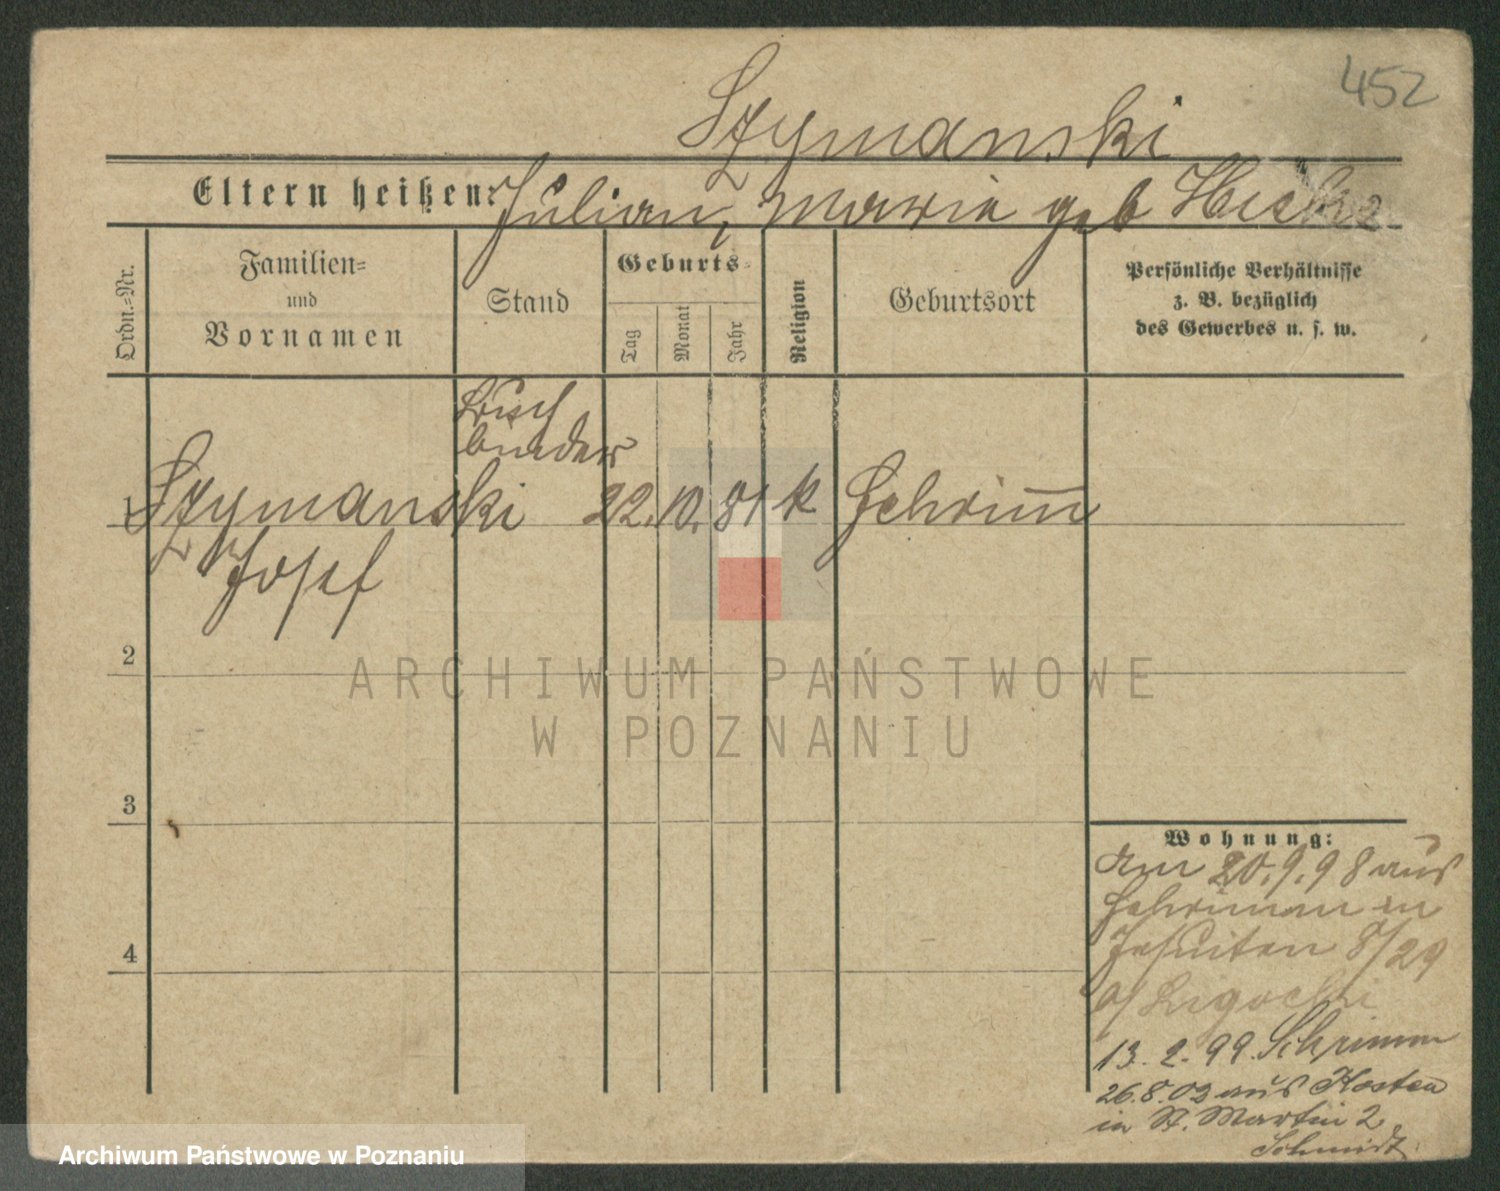 452
Szymanski
Eltern heißen: Julian, Maria geb
Ordn.-Nr.
Familien-
und
Vornamen
Stand
Geburts-
Tag
Monat
Jahr
Religion
Geburtsort
Persönliche Verhältnisse
z. B. bezüglich
des Gewerbes u. s. w.
Buch
binder
1 Szymanski 22. 10. 81 k Schrim̅
Josef
2
ARCHIWUM PAŃSTWOWE
W POZNANIU
3
4
Wohnung:
Am 20.9.98 aus
Schrimm in
Jesuiten 8/29
13.2.99. Schrimm
26.8.02 aus Kosten
in St. Martin 2
Schmidt
Archiwum Państwowe w Poznaniu